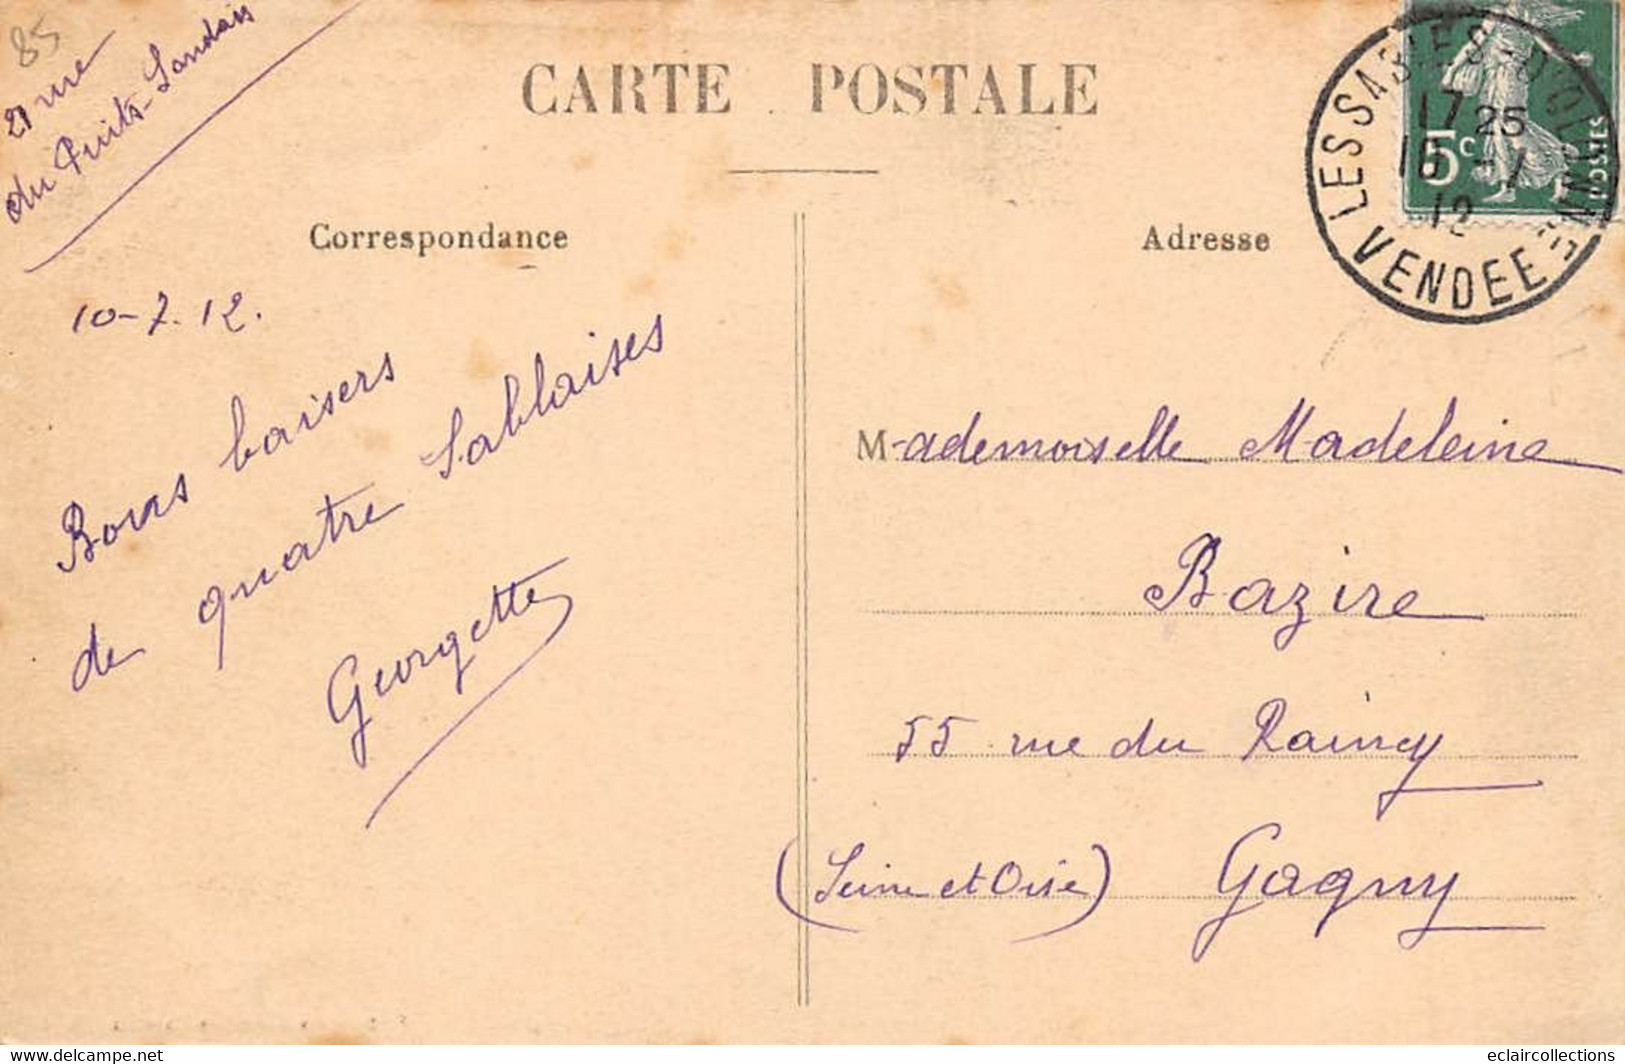 85
21 rue
du Puits-Landais
CARTE POSTALE
LES SABLES-D'OLONNE
17 25
10 -7
12
VENDEE
5c
POSTES
Correspondance
Adresse
10-7.12.
Bons baisers
de quatre Sablaises
Georgette
Mademoiselle Madeleine
Bazire
55 rue du Raincy
(Seine et Oise) Gagny
www.delcampe.net
eclaircollections